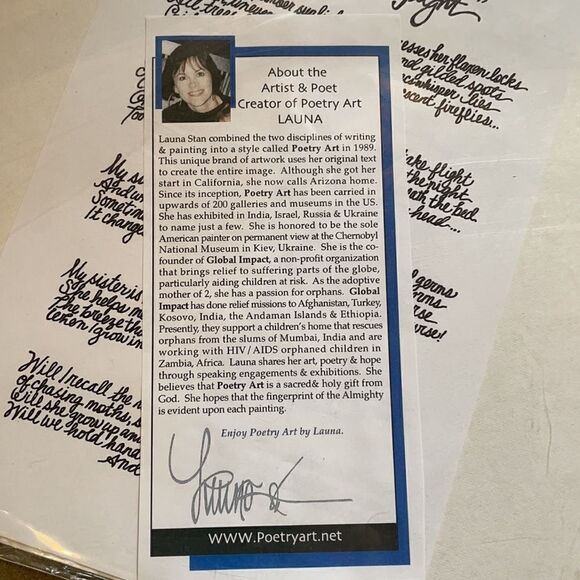 About the
Artist & Poet
Creator of Poetry Art
LAUNA
Launa Stan combined the two disciplines of writing
& painting into a style called Poetry Art in 1989.
This unique brand of artwork uses her original text
to create the entire image. Although she got her
start in California, she now calls Arizona home.
Since its inception, Poetry Art has been carried in
upwards of 200 galleries and museums in the US.
She has exhibited in India, Israel, Russia & Ukraine
to name just a few. She is honored to be the sole
American painter on permanent view at the Chernobyl
National Museum in Kiev, Ukraine. She is the co-
founder of Global Impact, a non-profit organization
that brings relief to suffering parts of the globe,
particularly aiding children at risk. As the adoptive
mother of 2, she has a passion for orphans. Global
Impact has done relief missions to Afghanistan, Turkey,
Kosovo, India, the Andaman Islands & Ethiopia.
Presently, they support a children's home that rescues
orphans from the slums of Mumbai, India and are
working with HIV/AIDS orphaned children in
Zambia, Africa. Launa shares her art, poetry & hope
through speaking engagements & exhibitions. She
believes that Poetry Art is a sacred& holy gift from
God. She hopes that the fingerprint of the Almighty
is evident upon each painting.
Enjoy Poetry Art by Launa.
WWW.Poetryart.net
her flaxen locks
gilded spots
lies
fireflies...
take flight
the night
the bed
head...
germs
My sister is
She helps m
The breeze tha
Will I recall the
of chasing moths,
will she grow up an
Will we hold hand
And